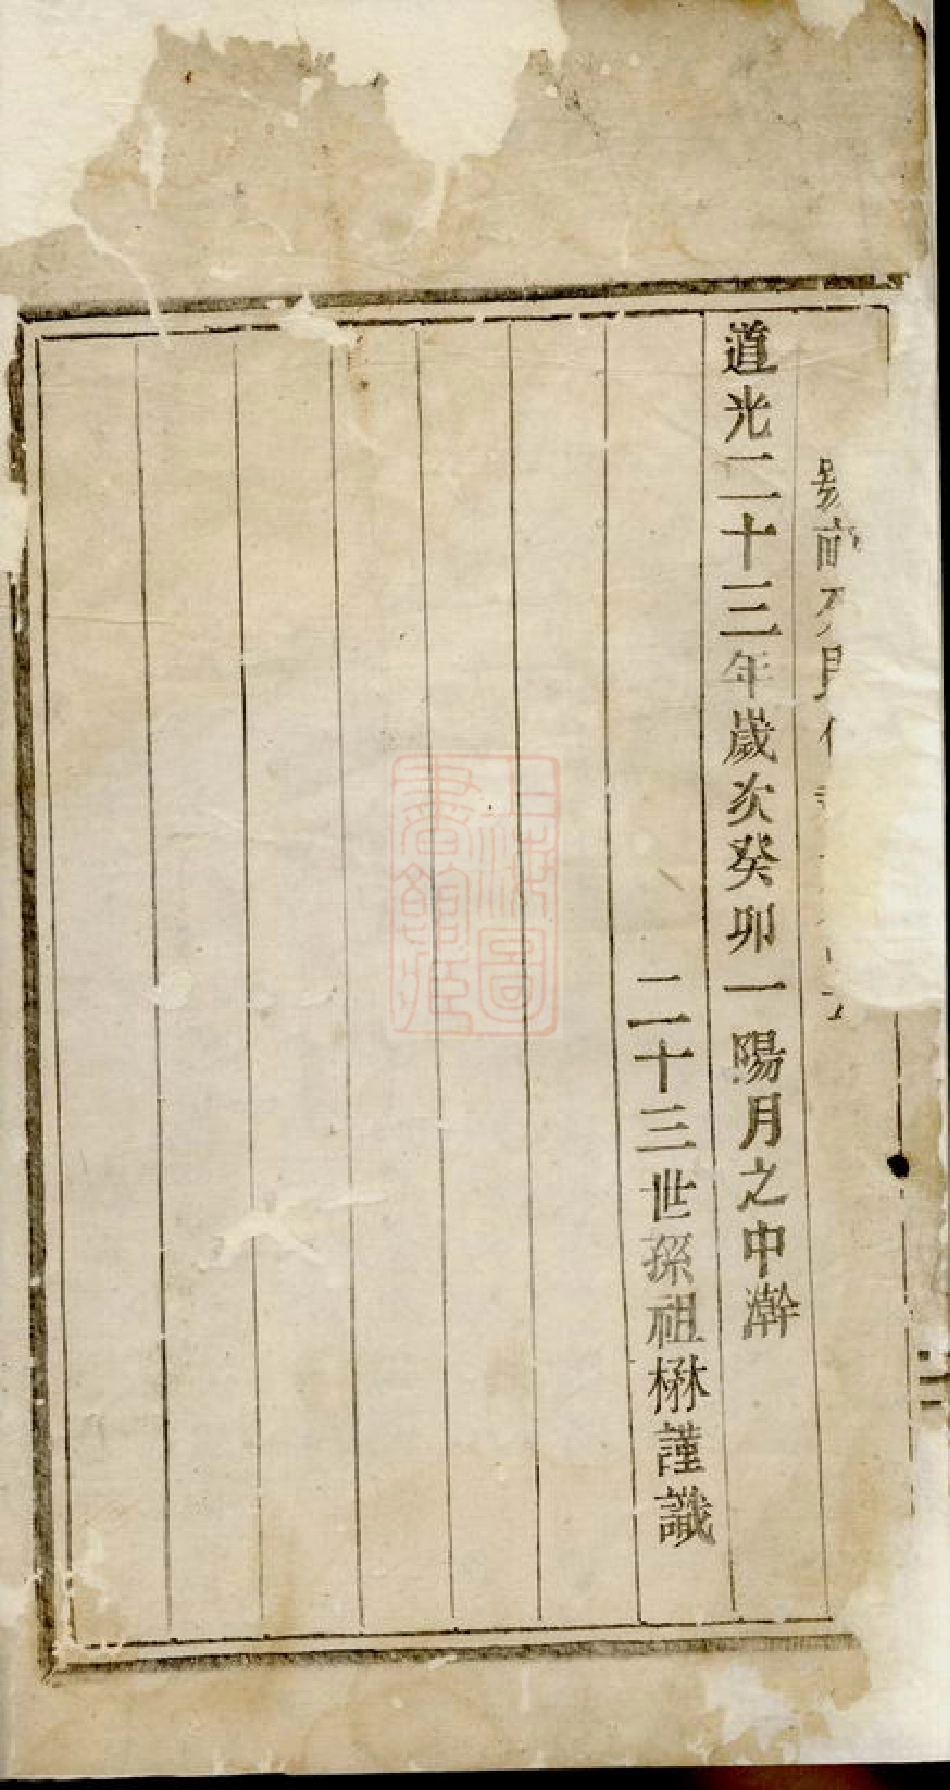 道光二十三年歲次癸卯一陽月之中澣
二十三世孫祖楙謹識
上海圖
書館藏